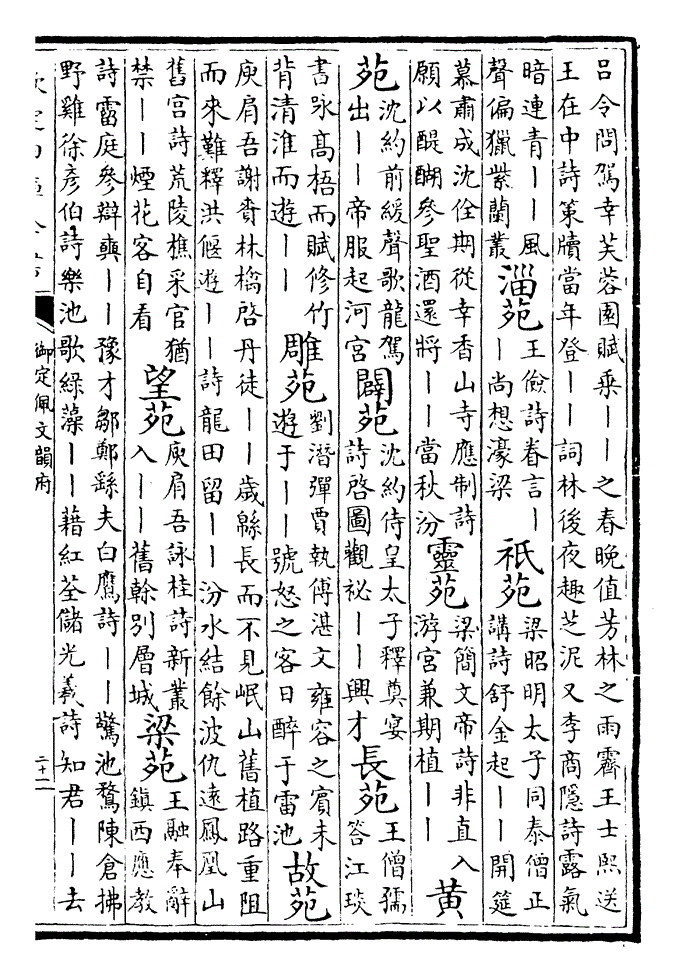 呂令問駕幸芙蓉園賦乗丨丨之春晚值芳林之雨霽王士熙送
王在中詩策牘當年登丨丨詞林後夜趣芝泥又李商隱詩露氣
暗連青丨丨風
聲偏獵紫蘭叢
淄苑
王儉詩眷言丨
丨尚想濠梁
祇苑
梁昭明太子同泰僧正
講詩舒金起丨丨開筵
慕肅成沈佺期從幸香山寺應制詩
願以醍醐參聖酒還將丨丨當秋汾
靈苑
梁簡文帝詩非直入
游宮兼期植丨丨
黄
苑
沈約前緩聲歌龍駕
出丨丨帝服起河宫
闢苑
沈約侍皇太子釋奠宴
詩啓圖觀祕丨丨興才
長苑
王僧孺
答江琰
書咏髙梧而賦修竹
背清淮而遊丨丨
雕苑
劉潛彈賈執傅湛文雍容之賓未
遊于丨丨號怒之客日醉于雷池
故苑
庾肩吾謝賚林檎啓丹徒丨丨歲緜長而不見岷山舊植路重阻
而來難釋洪偃遊丨丨詩龍田留丨丨汾水結餘波仇遠鳳凰山
舊宫詩荒陵樵采官猶
禁丨丨煙花客自看
望苑
庾肩吾詠桂詩新叢
入丨丨舊幹别層城
梁苑
王融奉辭
鎮西應教
詩雷庭參辯奭丨丨豫才鄒鄭繇夫白鷹詩丨丨驚池鶩陳倉拂
野雞徐彦伯詩樂池歌綠藻丨丨藉紅荃儲光羲詩知君丨丨去
欽定四庫全書
御定佩文韻府
二十一